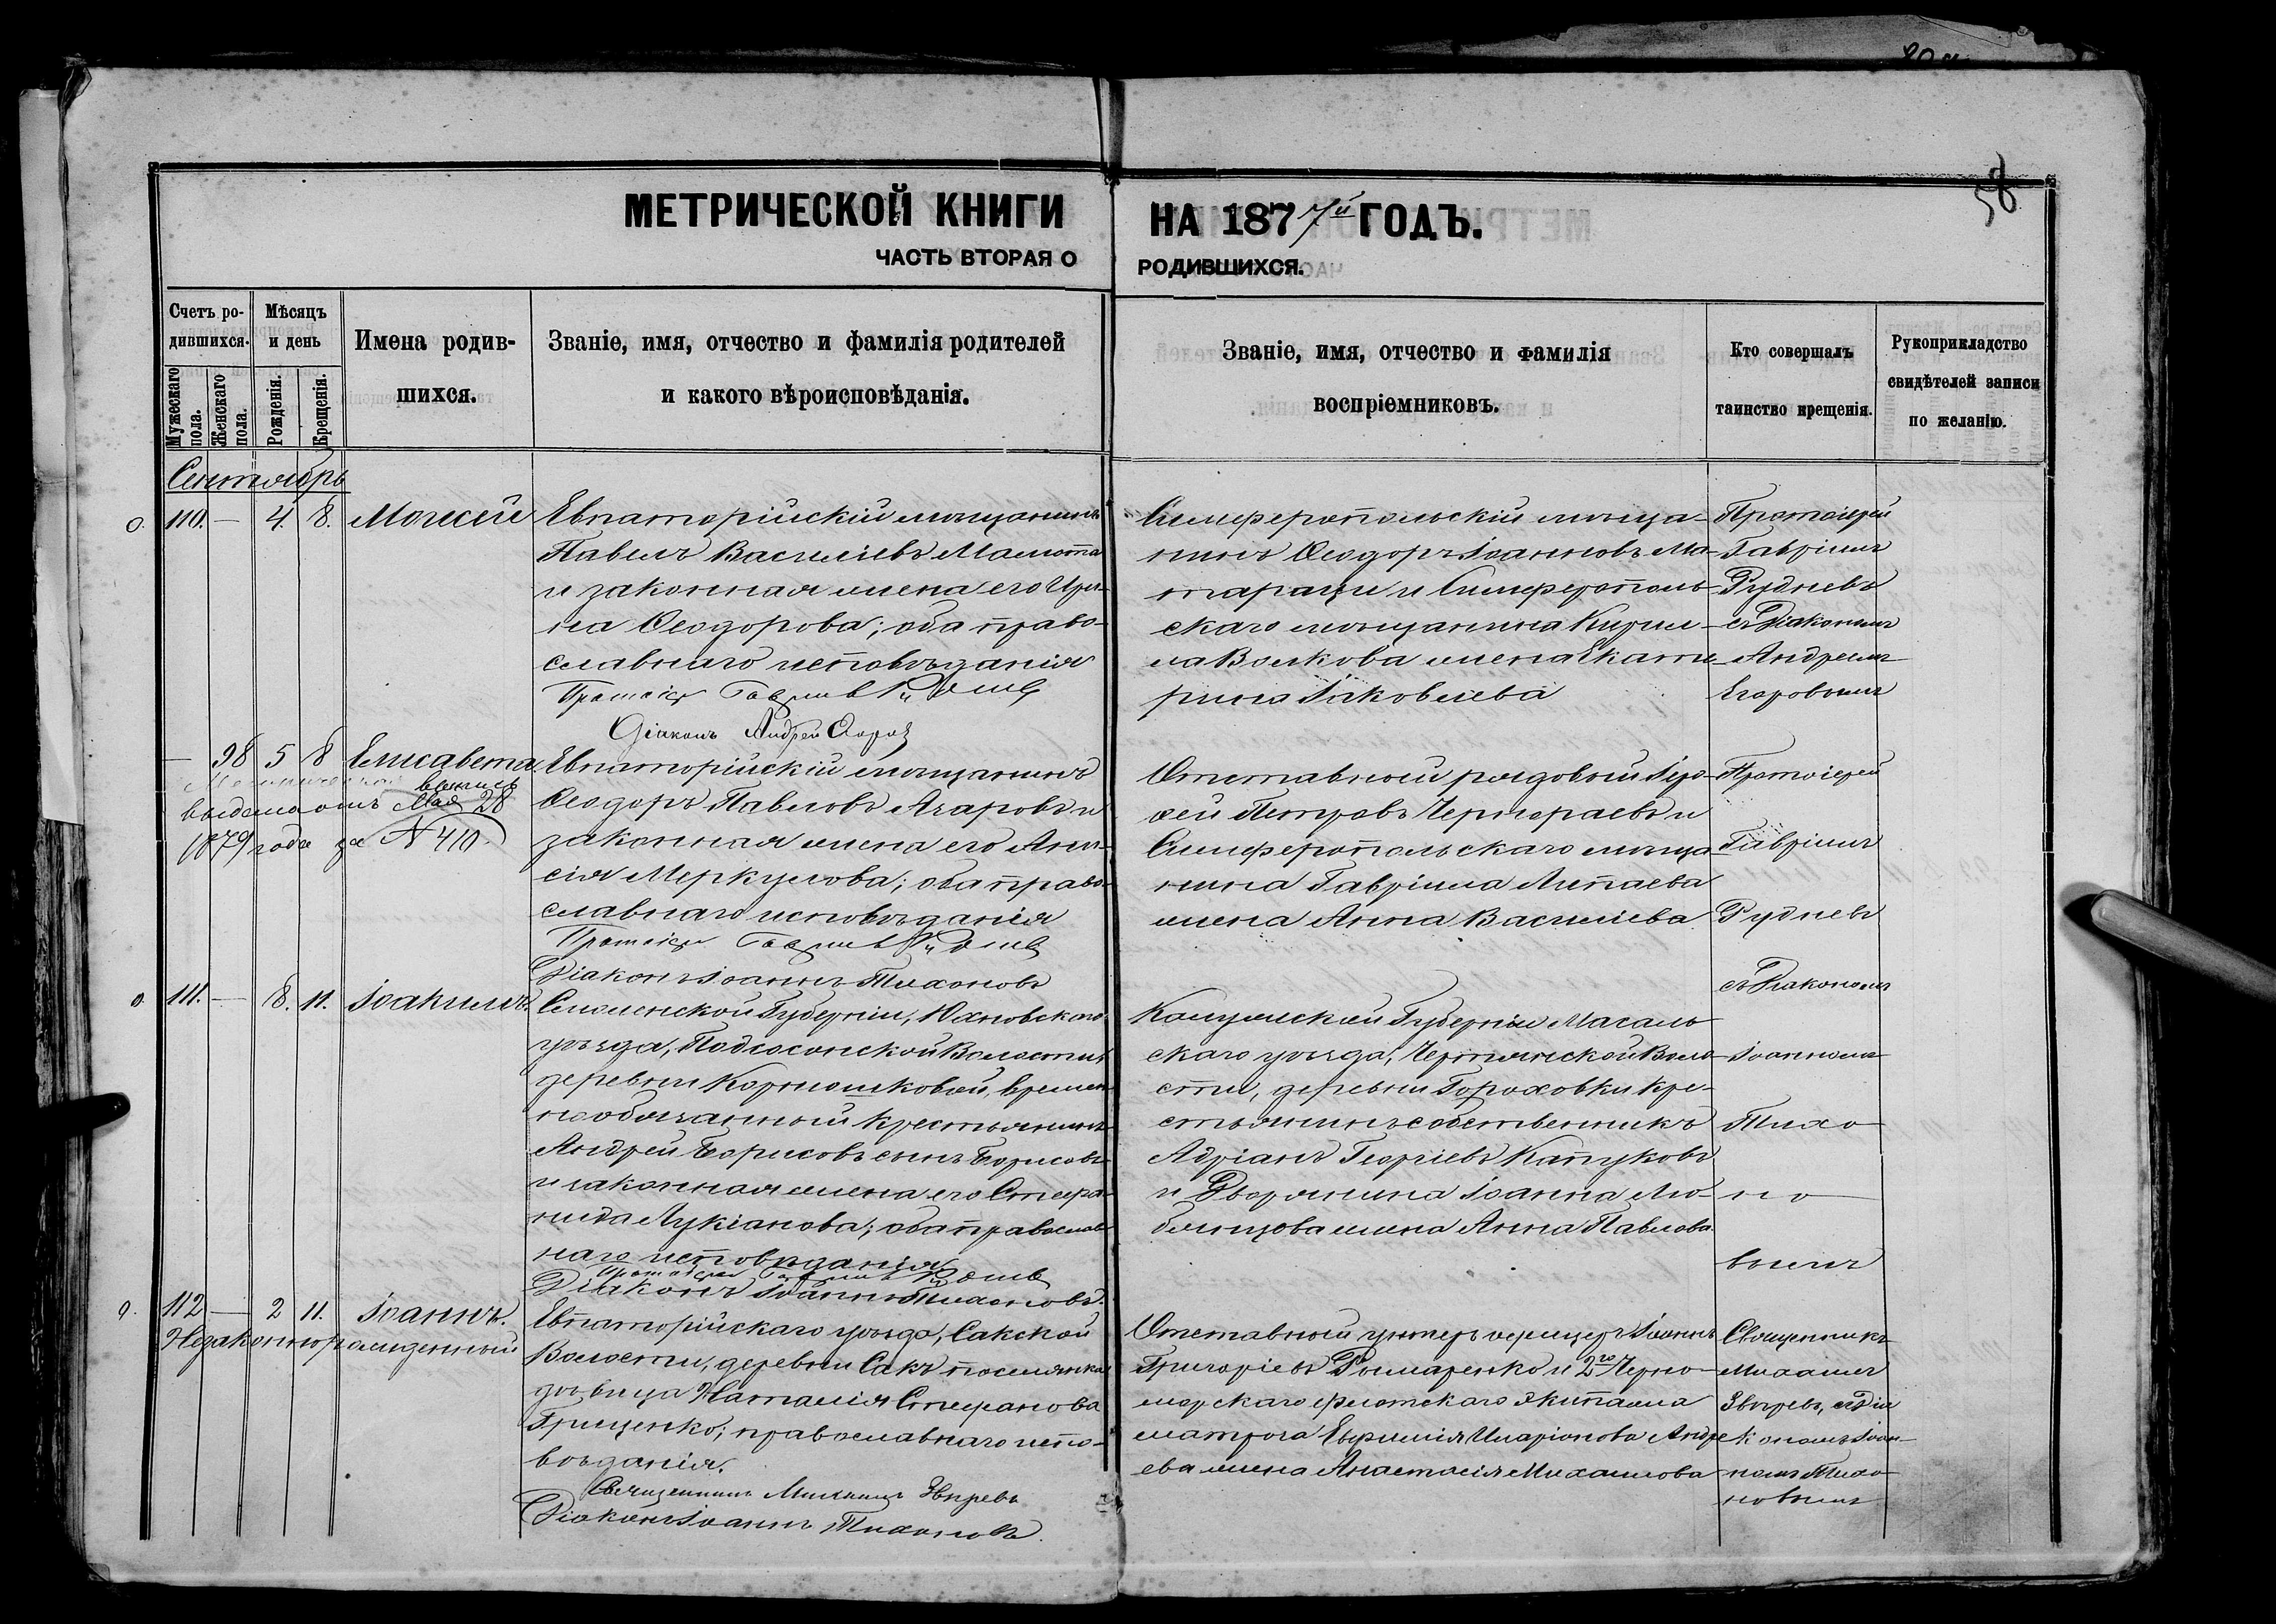 58
МЕТРИЧЕСКОЙ КНИГИ НА 1877й ГОДЪ.
ЧАСТЬ ВТОРАЯ О РОДИВШИХСЯ.
Счетъ ро-
дившихся.
Мужескаго пола.
Женскаго пола.
Мѣсяцъ
и день
Рожденія.
Крещенія.
Имена родив-
шихся.
Званіе, имя, отчество и фамилія родителей
и какого вѣроисповѣданія.
Званіе, имя, отчество и фамилія
воспріемниковъ.
Кто совершалъ
таинство крещенія.
Рукоприкладство
свидѣтелей записи
по желанію.
Сентябрь
110. — 4. 8. Моисей
Евпаторійскій мѣщанинъ
Павелъ Василіевъ
и законная жена его Ири-
на Ѳеодорова; оба право-
славнаго исповѣданія
Діаконъ Андрей
Симферопольскій мѣща-
нинъ Ѳеодоръ Іоанновъ Ма-
тараци и Симферополь-
скаго мѣщанина Кирил-
ла Волкова жена Екате-
рина Іаковлева
Протоіерей
Гавріилъ
Рудневъ
съ Діакономъ
Андреемъ
Егоровымъ
— 98 5 8 Елисавета
выпись
выдана отъ Мая 28
1879 года за № 410
Евпаторійскій мѣщанинъ
Ѳеодоръ Павловъ Азаровъ и
законная жена его Ани-
сія Меркулова; оба право-
славнаго исповѣданія
Діаконъ Іоаннъ Тихоновъ
Отставной рядовой Іеро-
ѳей Петровъ и
Симферопольскаго мѣща-
нина Гавріила Липаева
жена Анна Василіева
Протоіерей
Гавріилъ
Рудневъ
съ Діакономъ
Іоанномъ
Тихо-
но-
вымъ
111. — 8. 11. Іоакимъ.
Смоленской Губерніи, Юхновскаго
уѣзда, Подсосонской Волости
деревни Корнюшковой, времен-
но обязанный крестьянинъ
Андрей Борисовъ сынъ Борисовъ
и законная жена его Стефа-
нида Лукіанова; оба православ-
наго исповѣданія
Діаконъ Іоаннъ Тихоновъ.
Калужской Губерніи Масаль-
скаго уѣзда, Воло-
сти, деревни Гороховки кре-
стьянинъ собственникъ
Адріанъ Георгіевъ Капуковъ
и Дворянина Іоанна Лю-
бенцова жена Анна Павлова
112 — 2 11. Іоаннъ.
Незаконнорожденный
Евпаторійскаго уѣзда, Сакской
Волости, деревни Сакъ поселянка
дѣвица Наталія Стефанова
Грищенко; православнаго испо-
вѣданія.
Священникъ Михаилъ Звѣревъ
Діаконъ Іоаннъ Тихоновъ.
Отставной унтеръ офицеръ Іоаннъ
Григоріевъ Рымаренко и 2го Черно-
морскаго флотскаго экипажа
матроса Евфимія Иларіонова Андре-
ева жена Анастасія Михаилова
Священникъ
Михаилъ
Звѣревъ, съ Діа-
кономъ Іоан-
номъ Тихо-
новымъ